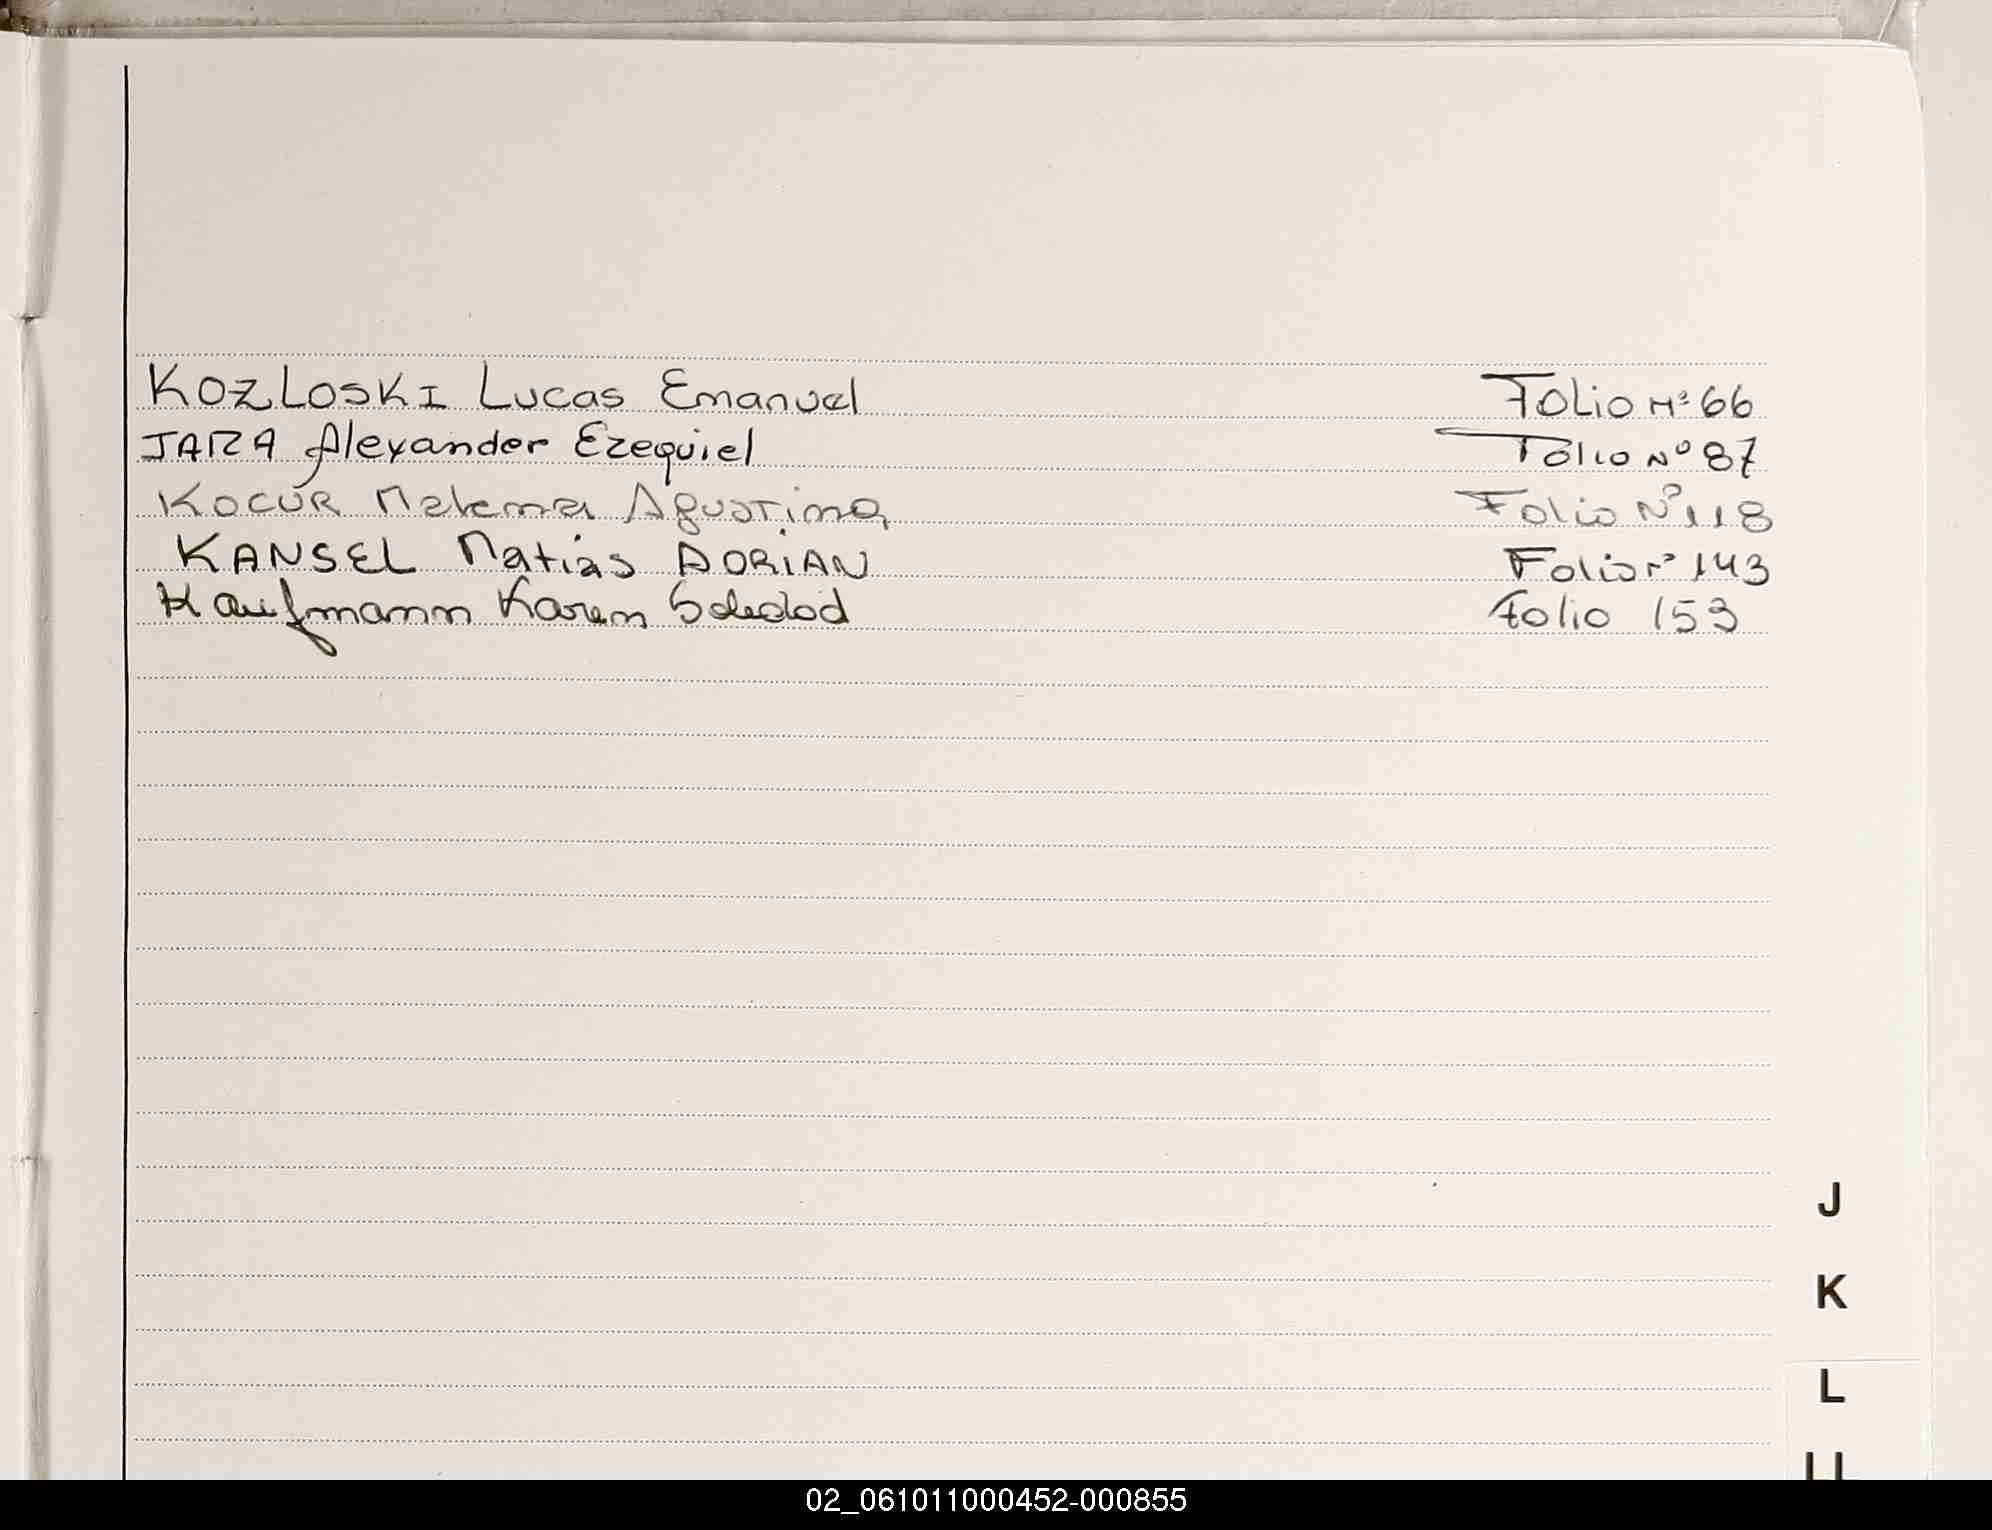 KOZLOSKI Lucas Emanuel Folio Nº 66
JARA Alexander Ezequiel Folio Nº 87
KOCUR Malema Agustina Folio Nº 118
KANSEL Matias DORIAN Folio Nº 143
Kaufmann Karen Soledad Folio 153
J
K
L
LL
02_061011000452-000855